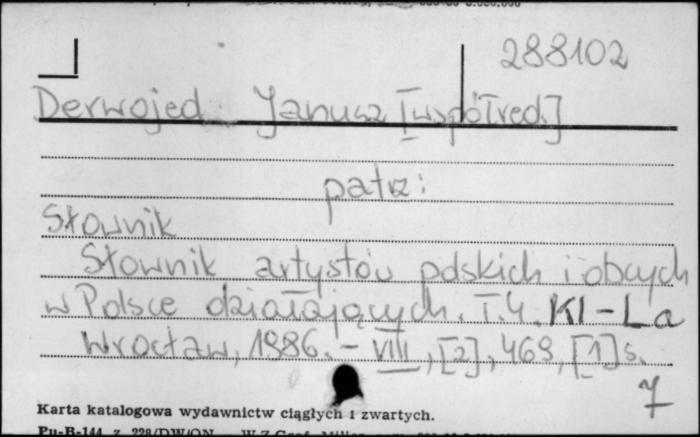 288102
Derwojed Janusz [współred.]
patrz:
Słownik
Słownik artystów polskich i obcych
w Polsce działających. T.4. Kl-La
Wrocław, 1986. - VIII, [2], 469, [1] s.
7
Karta katalogowa wydawnictw ciągłych i zwartych.
Pu-B-144 z. 228/DW/ON